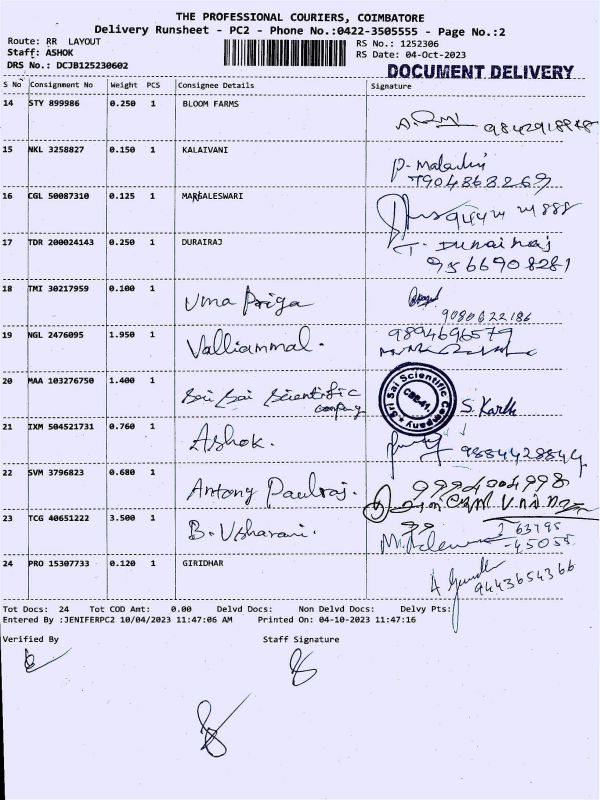 THE PROFESSIONAL COURIERS, COIMBATORE
Delivery Runsheet - PC2 - Phone No.:0422-3505555 - Page No.:2
Route: RR LAYOUT RS No.: 1252306
Staff: ASHOK RS Date: 04-Oct-2023
DRS No.: DCJB125230602 DOCUMENT DELIVERY
S No Consignment No Weight PCS Consignee Details Signature
14 STY 899986 0.250 1 BLOOM FARMS
15 NKL 3258827 0.150 1 KALAIVANI
7904868269
16 CGL 50087310 0.125 1
17 TDR 200024143 0.250 1 DURAIRAJ T. Durairaj
9566908281
18 TMI 30217959 0.100 1 Uma Priya
9080622186
19 NGL 2476095 1.950 1 Valliammal. 9894696579
20 MAA 103276750 1.400 1 Sri Sai Scientific company Sri Sai Scientific Company CBE-41. S. Karthi
21 IXM 504521731 0.760 1 Ashok. 9884428844
22 SVM 3796823 0.680 1 Antony Paulraj. 9994004998
23 TCG 40651222 3.500 1 B. Usharani. 63795
45055
24 PRO 15307733 0.120 1 GIRIDHAR 9443654366
Tot Docs: 24 Tot COD Amt: 0.00 Delvd Docs: Non Delvd Docs: Delvy Pts:
Entered By :JENIFERPC2 10/04/2023 11:47:06 AM Printed On: 04-10-2023 11:47:16
Verified By Staff Signature